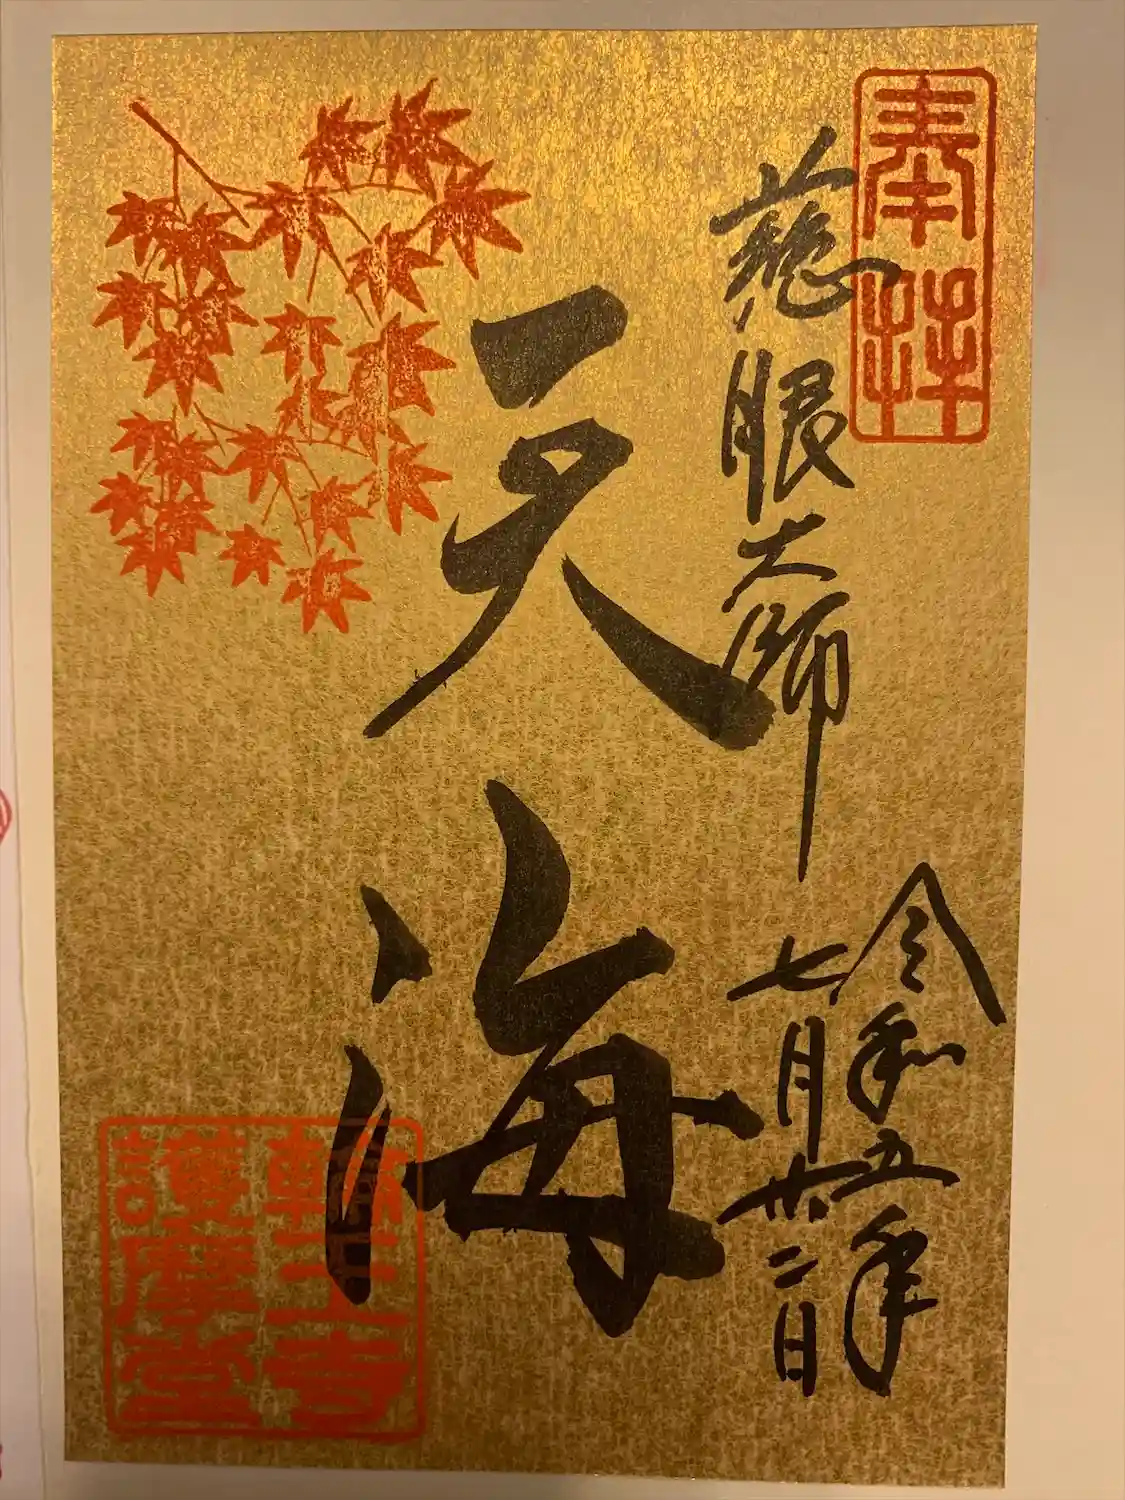 奉拝
慈眼大師
令和五年
七月廿二日
天海
輪王寺
護摩堂